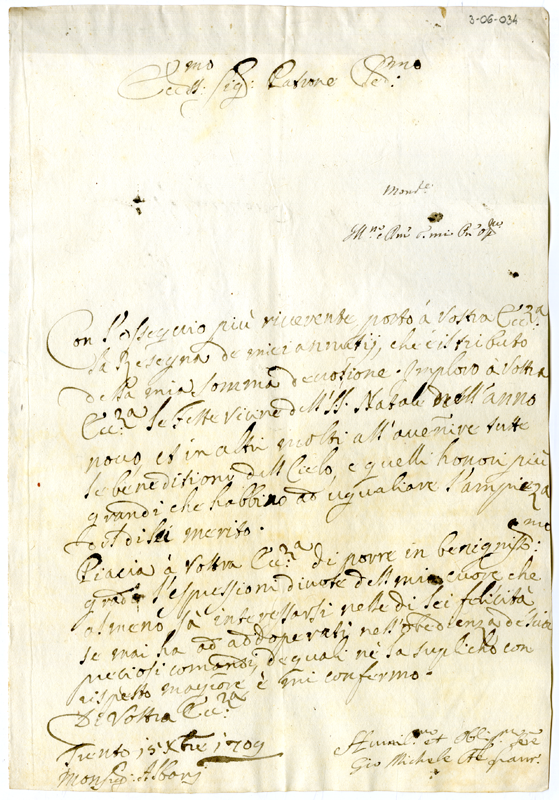 3-06-034
Ecc.mo Sig: Patrone Col.mo
Con l'ossequio più riverente porto à Vostra Ecc.za
la Resegna de miei annati, che è il tributo
della mia somma devotione. Imploro à Vostra
Ecc.za le Feste vicine dell' S. Natale dell'anno
novo et in altri molti all'avenire tutte
le beneditioni dall Cielo, e quelli honori più
grandi che habbino ad uguagliare l'ampiezza
del di lei merito.
Piacia à Vostra Ecc.za di porre in benigniss.mo
grado l'espressioni divote dell mio cuore che
almeno sà interessarsi nelle di Lei felicità
se mai ha ad addoperarsi nell'obedienza de suoi
preciosi comandi de quali ne la suplicho con
rispetto magiore è mi confermo.
Di Vostra Ecc.za
Trento 15 Xbre 1709
Monsig: Albani
Humil.mo et Oblig.mo
Gio Michele